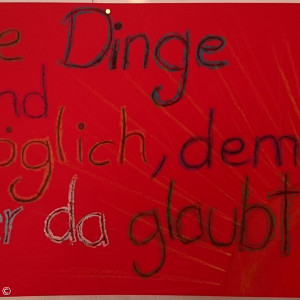 e Dinge
nd
öglich, dem
r da glaubt
©